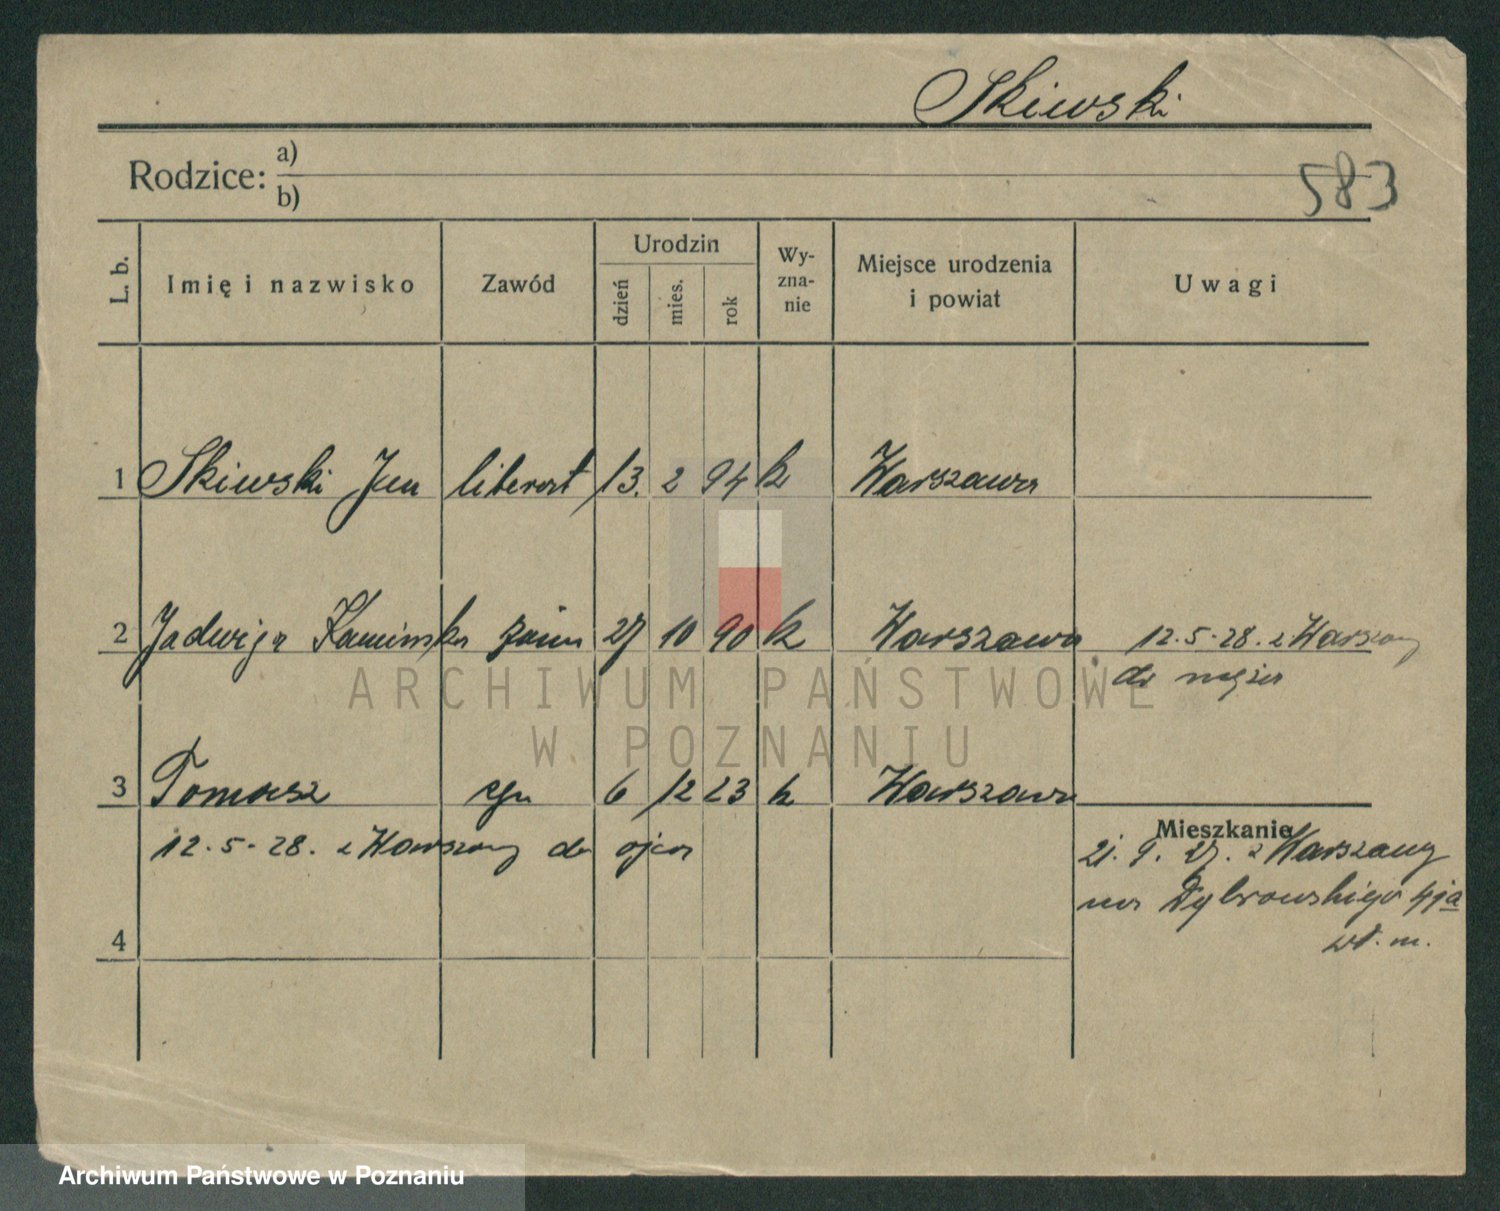 Skiwski
583
Rodzice: a)
b)
L. b. Imię i nazwisko Zawód Urodzin dzień mies. rok Wyzna-nie Miejsce urodzenia i powiat Uwagi
1 Skiwski Jan literat 13. 2 94 k Warszawa
2 Jadwiga Kamińska żona 27 10 90 k Warszawa 12.5.28. z Warszawy
do męża
3 Tomasz syn 6 12 23 k Warszawa
Mieszkanie
12.5.28. z Warszawy do ojca
21. 9. 27. z Warszawy
na Dąbrowskiego 41a
wł. m.
4
ARCHIWUM PAŃSTWOWE
W POZNANIU
Archiwum Państwowe w Poznaniu